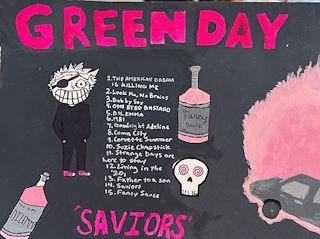 GREEN DAY
1. THE AMERICAN DREAM
IS KILLING ME
2. Look Ma, No Brains
3. Bobby Sox
4. ONE EYED BASTARD
5. DILEMMA
6. 1981
7. Goodnight Adeline
8. Coma City
9. Corvette Summer
10. Suzie Chapstick
11. Strange Days are
here to stay
12. Living in the
'20s
13. Father to a son
14. Saviors
15. Fancy Sauce
Fancy
SAUCE
DILEMMA
'SAVIORS'